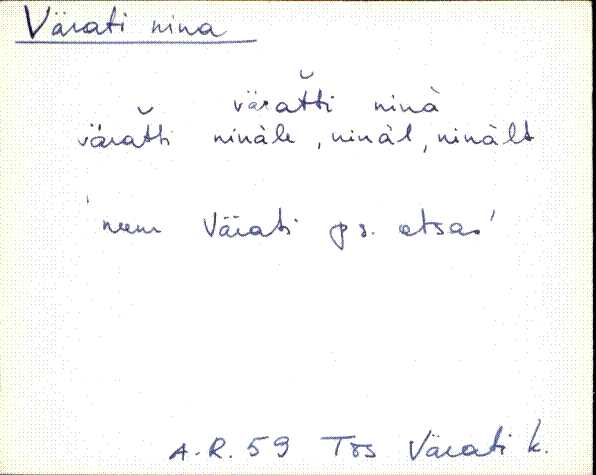 Värati nina
värat̆ti ninà
värat̆ti ninàle, ninàl, ninàlt
'neem Värati ps. otsas'
A.R. 59 Tõs Värati k.